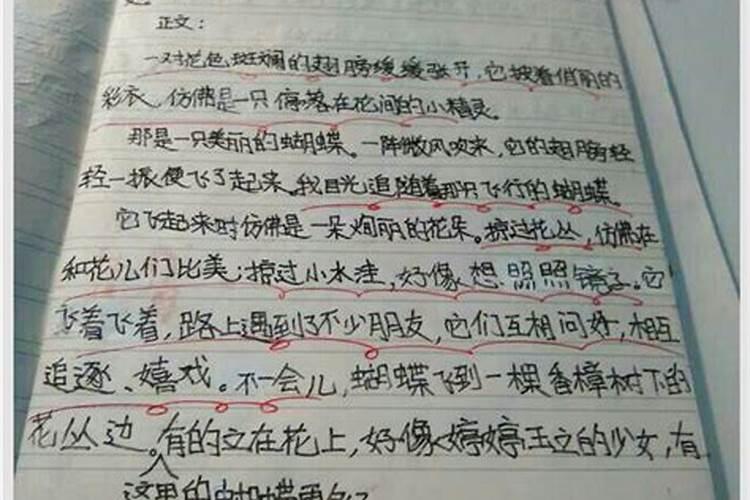 正文：
一对花色斑斓的翅膀缓缓张开，它披着俏丽的
彩衣，仿佛是一只停落在花间的小精灵。
那是一只美丽的蝴蝶。一阵微风吹来，它的翅膀轻
轻一振便飞了起来。我目光追随着那只飞行的蝴蝶。
它飞起来时仿佛是一朵绚丽的花朵。掠过花丛，仿佛在
和花儿们比美；掠过小水洼，好像想照照镜子。它
飞着飞着，路上遇到了不少朋友，它们互相问好，相互
追逐、嬉戏。不一会儿，蝴蝶飞到一棵香樟树下的
花丛边。有的立在花上，好像婷婷玉立的少女，有
这里的蝴蝶更多了